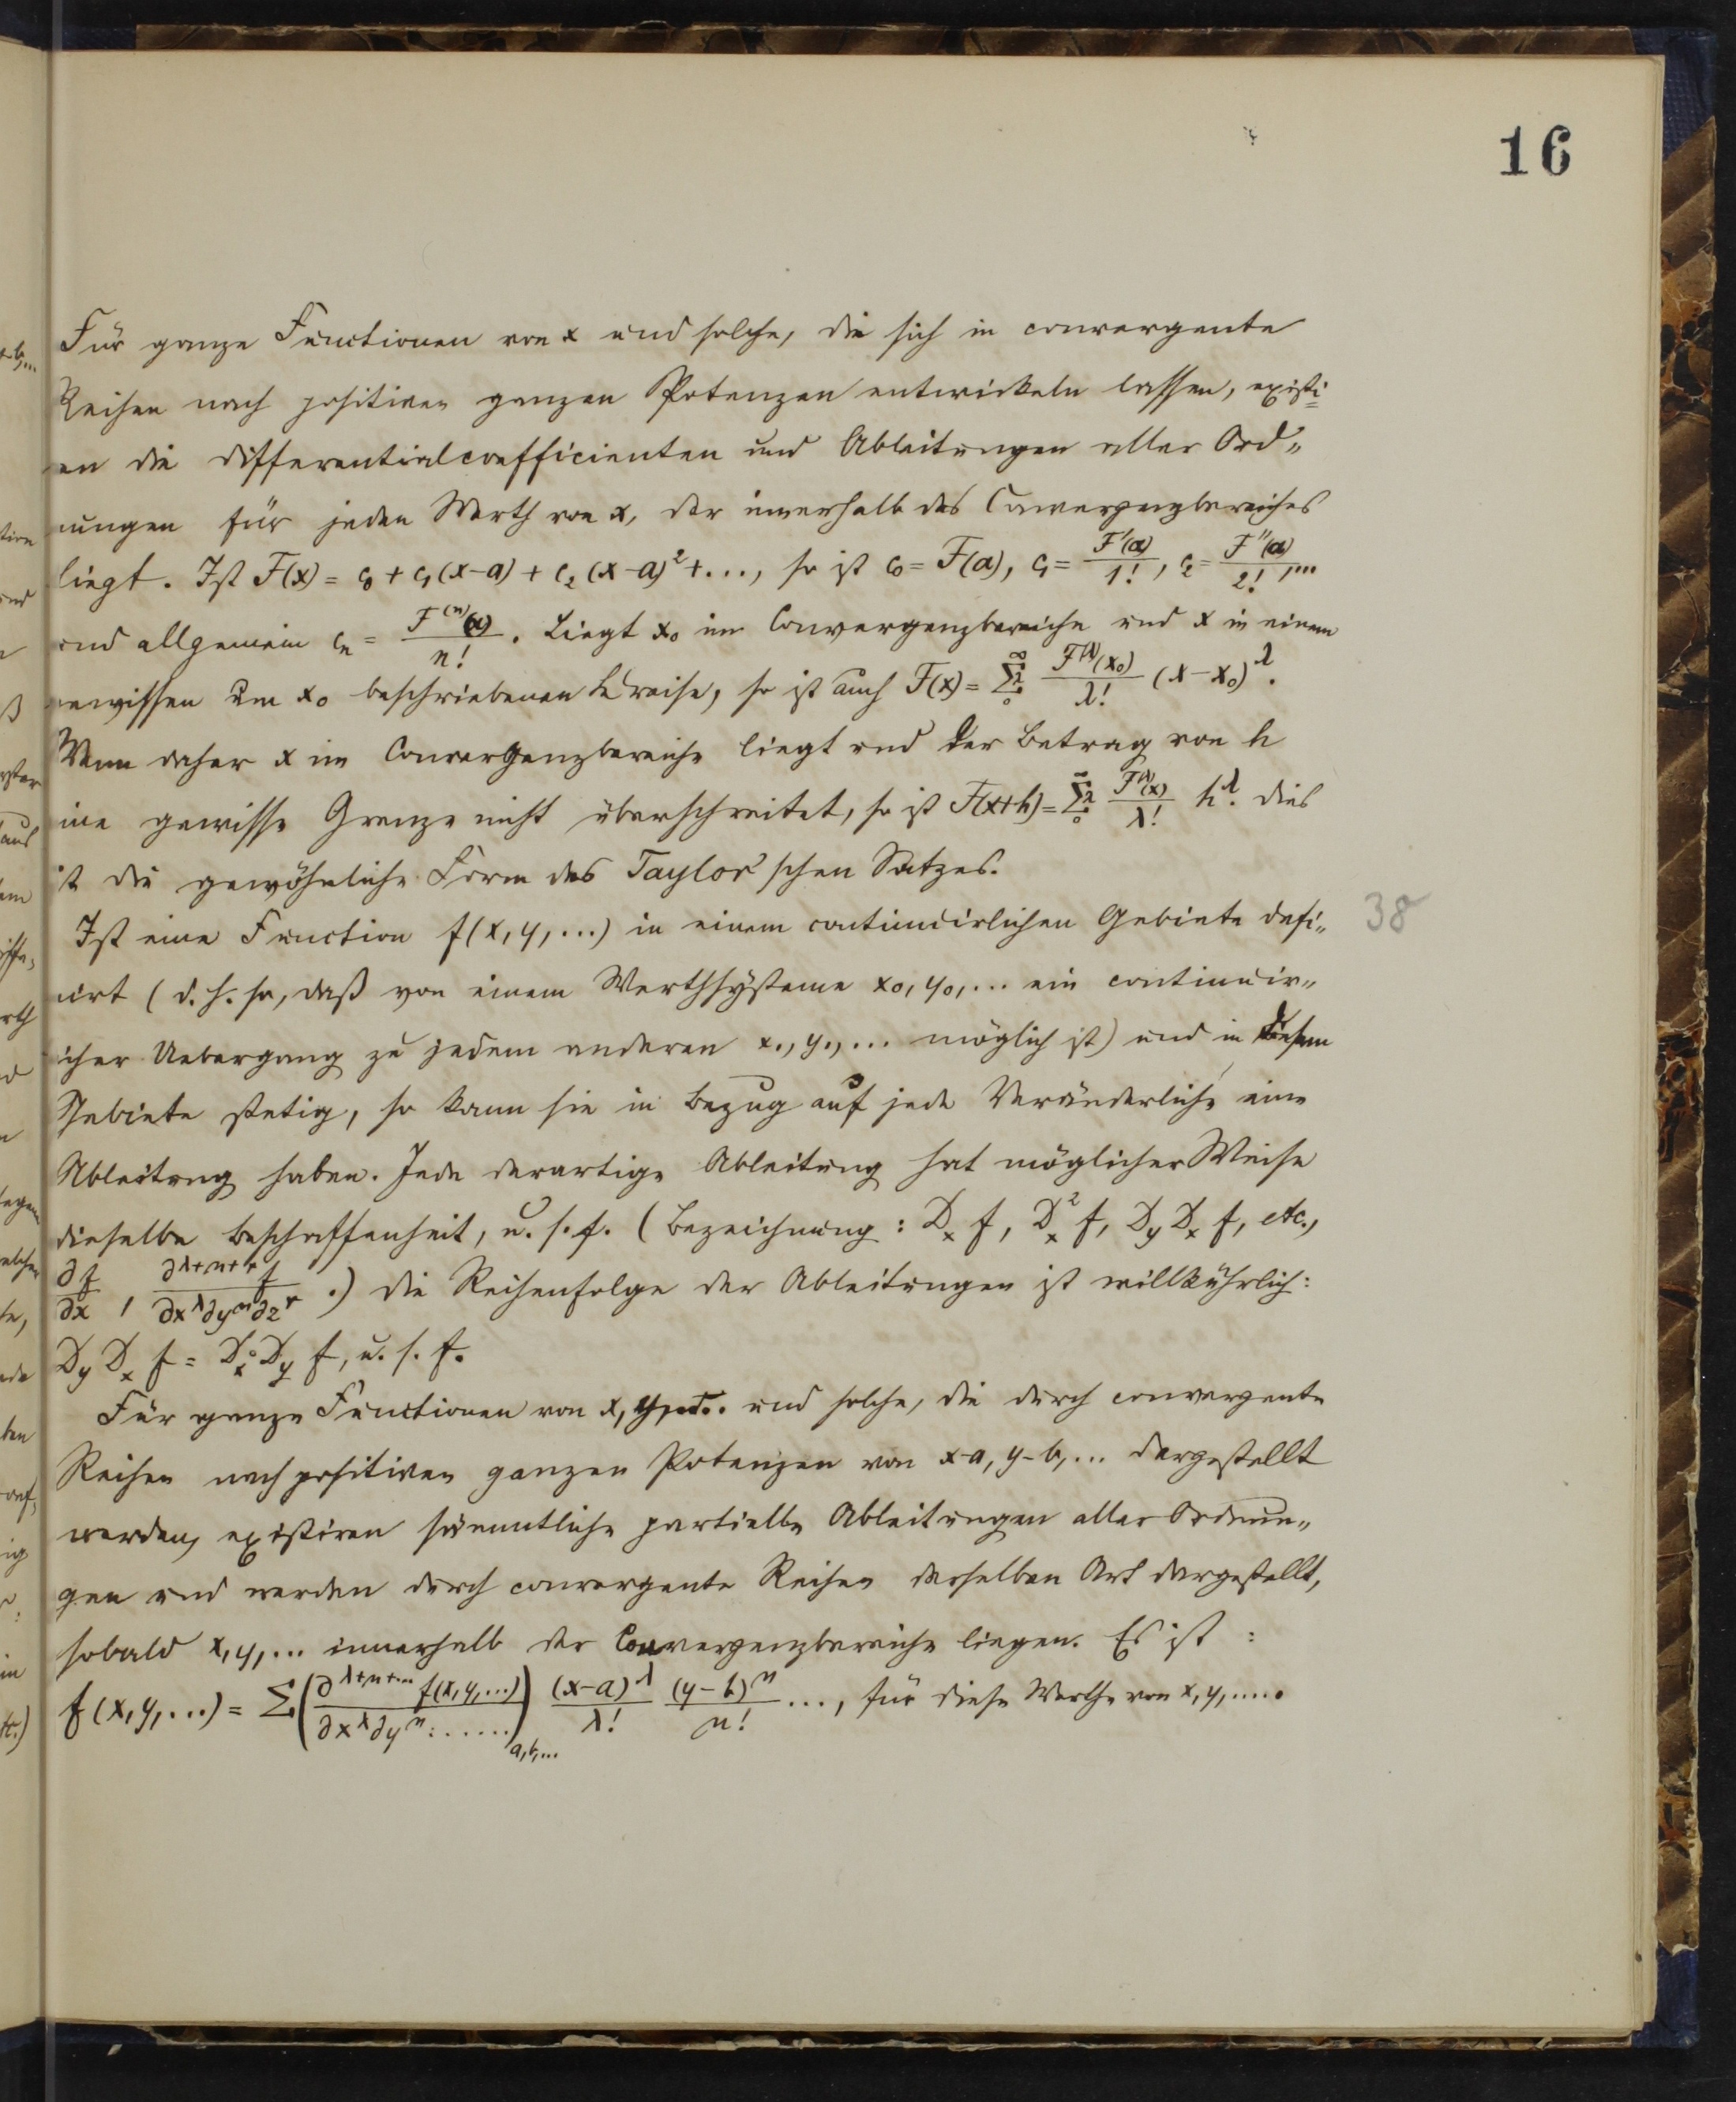 16
Für ganze Functionen von x und solche, die sich in convergente
Reihen nach positiven ganzen Potenzen entwickeln lassen, existi=
en die Differentialcoefficienten und Ableitungen aller Ord„
nungen für jeden Werth von x, der innerhalb des Convergenzbereiches
liegt. Ist F(x) = c₀ + c₁(x-a) + c₂(x-a)² + ..., so ist c₀ = F(a), c₁ = F'(a)/1!, c₂ = F''(a)/2!, ...
und allgemein cₙ = F⁽ⁿ⁾(a)/n!. Liegt x₀ im Convergenzbereiche und x in einem
gewissen um x₀ beschriebenen Kreise, so ist auch F(x) = Σ_λ₀^∞ F^(λ)(x₀)/λ! (x-x₀)^λ.
Wenn daher x im Convergenzbereiche liegt und der Betrag von h
ine gewisse Grenze nicht überschreitet, so ist F(x+h) = Σ_λ₀^∞ F^(λ)(x)/λ! h^λ. Dies
it die gewöhnliche Form des Taylor'schen Satzes.
Ist eine Function f(x, y, ...) in einem continuirlichen Gebiete defi„ 38
nirt (d. h. so, daß von einem Werthsysteme x₀, y₀, ... ein continuir„
icher Uebergang zu jedem anderen x₁, y₁, ... möglich ist) und in diesem
Gebiete stetig, so kann sie in Bezug auf jede Veränderliche eine
Ableitung haben. Jede derartige Ableitung hat möglicher Weise
dieselbe Beschaffenheit, u. s. f. (Bezeichnung: Dₓ f, Dₓ² f, D_y Dₓ f, etc.,
∂f/∂x, ∂^(λ+μ+ν) f/∂x^λ ∂y^μ ∂z^ν.) Die Reihenfolge der Ableitungen ist willkührlich:
D_y Dₓ f = Dₓ D_y f, u. s. f.
Für ganze Functionen von x, y, ... und solche, die durch convergente
Reihen nach positiven ganzen Potenzen von x-a, y-b, ... dargestellt
werden, existiren sämmtliche partielle Ableitungen aller Ordnun„
gen und werden durch convergente Reihen derselben Art dargestellt,
sobald x, y, ... innerhalb der Convergenzbereiche liegen. Es ist:
f(x, y, ...) = Σ (∂^(λ+μ+...) f(x, y, ...)/∂x^λ ∂y^μ ......)_a,b,... (x-a)^λ/λ! (y-b)^μ/μ! ..., für diese Werthe von x, y, .....